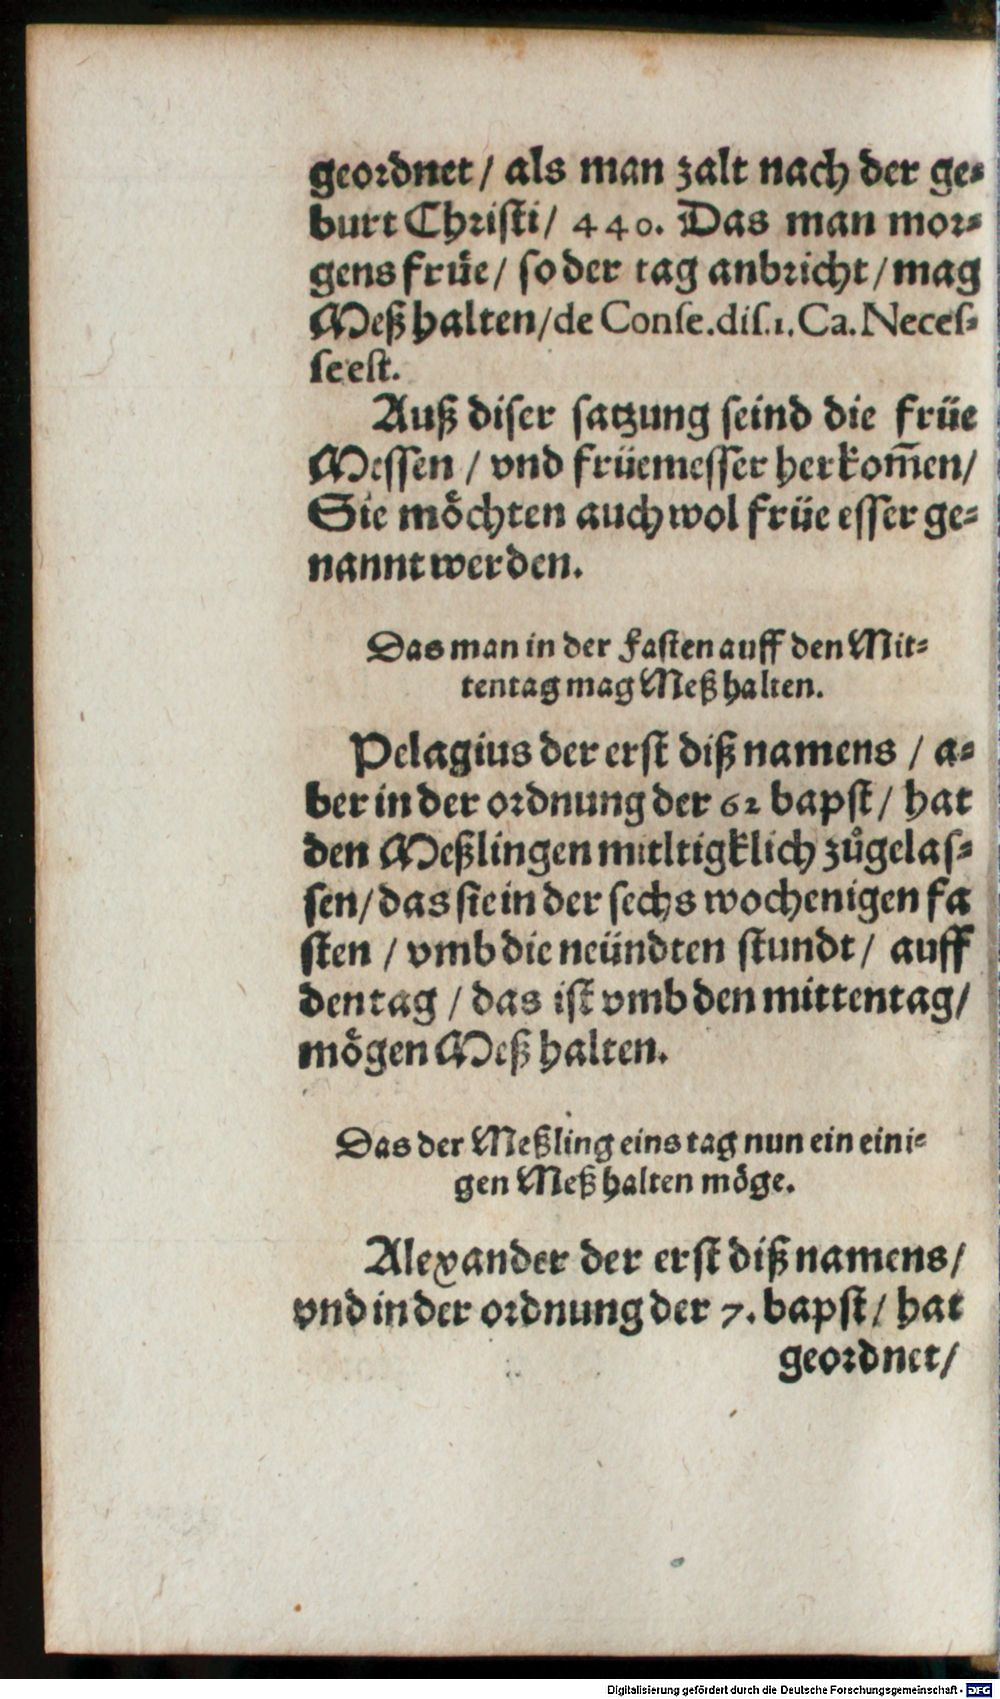 geordnet / als man zalt nach der ge⸗
burt Christi / 440. Das man mor⸗
gens früe / so der tag anbricht / mag
Meß halten / de Conse. dis. 1. Ca. Neces⸗
se est.
Auß diser satzung seind die früe
Messen / vnd früemesser herkom̃en /
Sie möchten auch wol früe esser ge⸗
nannt werden.
Das man in der Fasten auff den Mit⸗
tentag mag Meß halten.
Pelagius der erst diß namens / a⸗
ber in der ordnung der 62 bapst / hat
den Meßlingen miltigklich zůgelas⸗
sen / das sie in der sechs wochenigen fa
sten / vmb die neündten stundt / auff
den tag / das ist vmb den mittentag /
mögen Meß halten.
Das der Meßling eins tag nun ein eini⸗
gen Meß halten möge.
Alexander der erst diß namens /
vnd in der ordnung der 7. bapst / hat
geordnet /
Digitalisierung gefördert durch die Deutsche Forschungsgemeinschaft - DFG